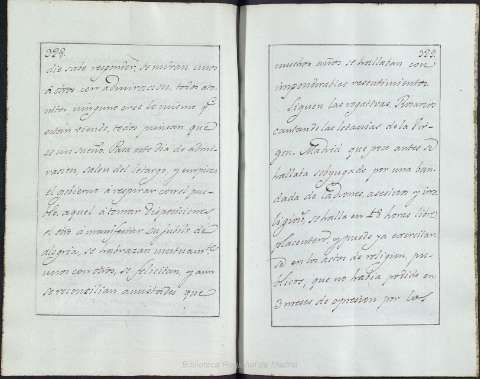 328.
die sabe responder, se miran unos
a otros con admiracion, todos ato-
nitos ninguno cree lo mismo q.e
estan viendo, todos piensan que
es un sueño. Pasa este dia de admi-
racion, salen del letargo, y empieza
el gobierno a respirar con el pue-
blo, aquel a tomar disposiciones
y este a manifestar su jubilo de
alegria, se abrazan mutuam.te
unos con otros, se felicitan, y aun
se reconcilian amistades que
329.
muchos años se hallaban con
imponderables resentimientos
Siguen las rogativas, Rosarios
cantando las letanias de la Vir-
gen. Madrid que poco antes se
hallaba subyugado por una ban-
dada de ladrones, asesinos y irre-
ligios.s se halla en 24 horas libre,
placentero y puede ya exercitar-
se en los actos de religion, pu-
blicos, que no habia podido en
3 meses de opresion por los
Biblioteca Regional de Madrid